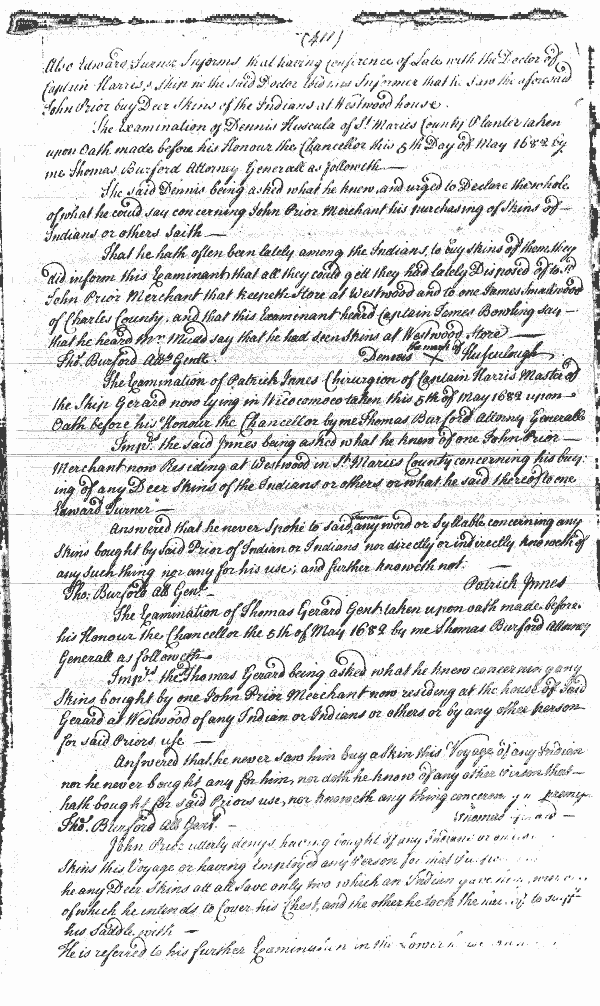 (411)
Also Edward Turner Informs that having conference of Late with the Doctor of
Captain Harris's Ship he the said Doctor told this Informer that he saw the aforesaid
John Prior buy Deer Skins of the Indians at Westwood house.
The Examination of Dennis Huscula of St. Maries County Planter taken
upon Oath made before his Honour the Chancellor this 5th Day of May 1682 by
me Thomas Burford Attorney Generall as followeth —
The said Dennis being asked what he knew, and urged to Declare the whole
of what he could say concerning John Prior Merchant his purchasing of Skins of
Indians or others saith —
That he hath often been lately among the Indians, to buy skins of them, they
did inform this Examinant that all they could gett they had lately Disposed of to sd.
John Prior Merchant that keepeth Store at Westwood and to one James Smallwood
of Charles County, and that this Examinant heard Captain James Bowling say —
that he heard Mr. Mudd say that he had seen skins at Westwood Store —
Tho. Burford Att. Genll. Dennis the mark of X Huseulough
The Examination of Patrick Innes Chirurgion of Captain Harris Master of
the Ship Gerard now lying in Wicocomoco taken this 5th of May 1682 upon
Oath before his Honour the Chancellor by me Thomas Burford Attorney Generall
Imprs. the said Innes being asked what he knew of one John Prior —
Merchant now Residing at Westwood in St. Maries County concerning his buy-
ing of any Deer Skins of the Indians or others or what he said thereof to one
Edward Turner —
Answered that he never Spoke to said Turner any word or Syllable concerning any
Skins bought by said Prior of Indian or Indians nor directly or indirectly knoweth of
any such thing nor any for his use; and further knoweth not. —
Tho: Burford Att Genl. — Patrick Innes
The Examination of Thomas Gerard Gent. taken upon oath made before
his Honour the Chancellor the 5th of May 1682 by me Thomas Burford Attorney
Generall as followeth —
Imprs. the Thomas Gerard being asked what he knew concerning any
Skins bought by one John Prior Merchant now residing at the house of said
Gerard at Westwood of any Indian or Indians or others or by any other person
for said Priors use —
Answered that he never saw him buy a skin this Voyage of any Indian
nor he never bought any for him, nor doth he know of any other Person that —
hath bought for said Priors use, nor knoweth any thing concerning
Tho. Burford Att Genl. — Thomas Gerard
John Prior utterly denys having bought of any Indians or
Skins this Voyage or having Employed any Person for that
he any Deer Skins att all save only two which an Indian gave him
of which he intends to Cover his Chest, and the other he took the
his Saddle with —
He is referred to his further Examination in the Lower